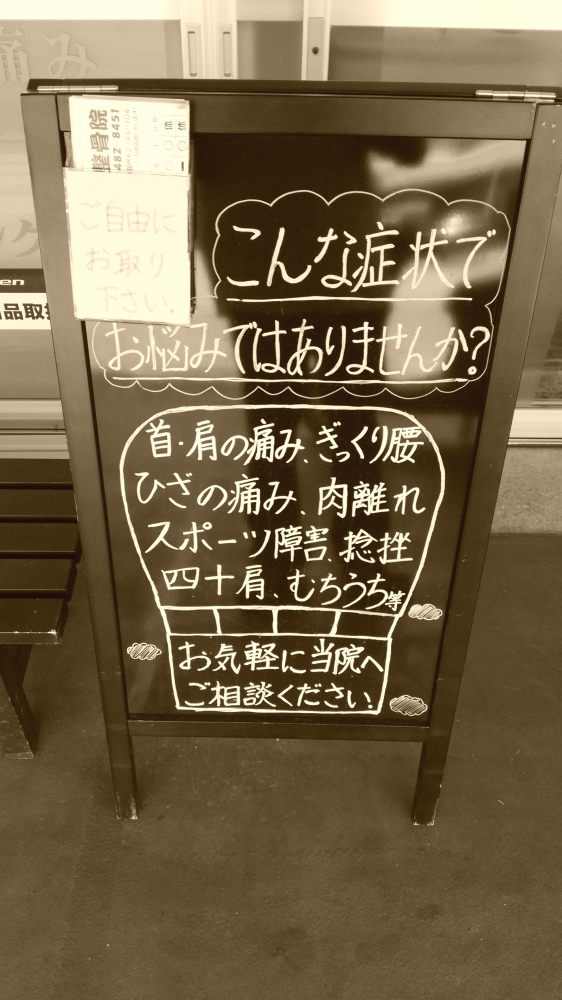 痛み
整骨院
482 8451
ご自由に
お取り
下さい。
こんな症状で
お悩みではありませんか?
首・肩の痛み、ぎっくり腰
ひざの痛み、肉離れ
スポーツ障害、捻挫
四十肩、むちうち等
お気軽に当院へ
ご相談ください!
en
品取扱